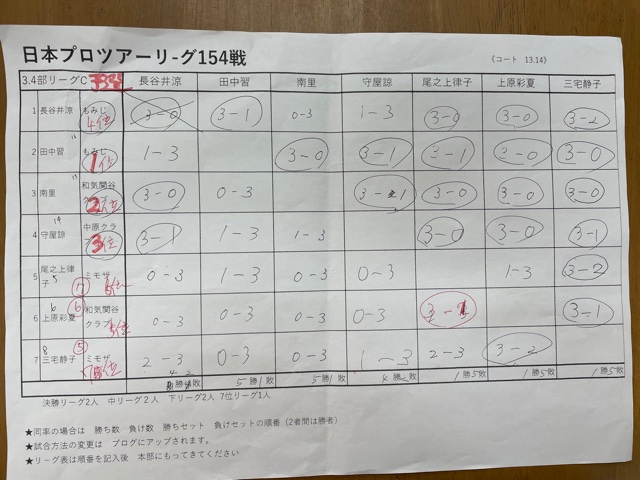 日本プロツアーリーグ154戦
《コート 13.14》
3.4部リーグC 予選 長谷井涼 田中習 南里 守屋諒 尾之上律子 上原彩夏 三宅静子
1 長谷井涼 もみじ 4位 3-0 3-1 0-3 1-3 3-0 3-0 3-2
2 田中習 もみじ 1位 1-3 3-0 3-1 3-1 3-0 3-0
3 南里 和気関谷クラブ 2位 3-0 0-3 3-1 3-0 3-0 3-0
4 守屋諒 中原クラブ 3位 3-1 1-3 1-3 3-0 3-0 3-1
5 尾之上律子 ミモザ 0-3 1-3 0-3 0-3 1-3 3-2
6 上原彩夏 和気関谷クラブ 0-3 0-3 0-3 0-3 3-1 3-1
7 三宅静子 ミモザ 2-3 0-3 0-3 1-3 2-3 3-2
4勝2敗 5勝1敗 5勝1敗 4勝2敗 1勝5敗 1勝5敗
決勝リーグ2人 中リーグ2人 下リーグ2人 7位リーグ1人
★同率の場合は 勝ち数 負け数 勝ちセット 負けセットの順番（2者間は勝者）
★試合方法の変更は ブログにアップされます。
★リーグ表は順番を記入後 本部にもってきてください